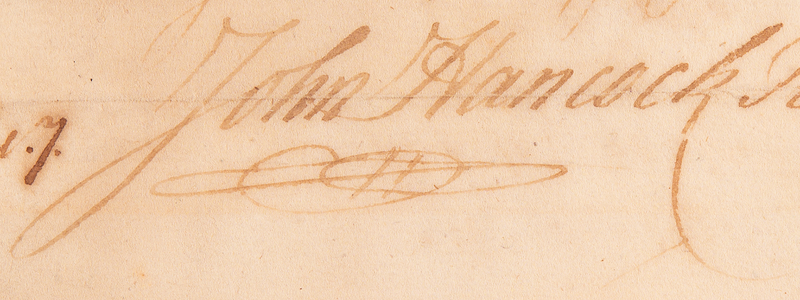 John Hancock
7.